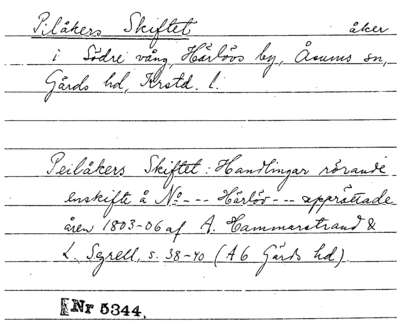 Pilåkers Skiftet åker
i Södre vång, Härlövs by, Åsums sn,
Gärds hd, Krstd. l.
Peilåkers Skiftet: Handlingar rörande
enskifte å No --- Härlöv --- upprättade
åren 1803-06 af A. Hammarstrand &
L. Segrell, s. 38-40 (A6 Gärds hd).
Nr 5344.